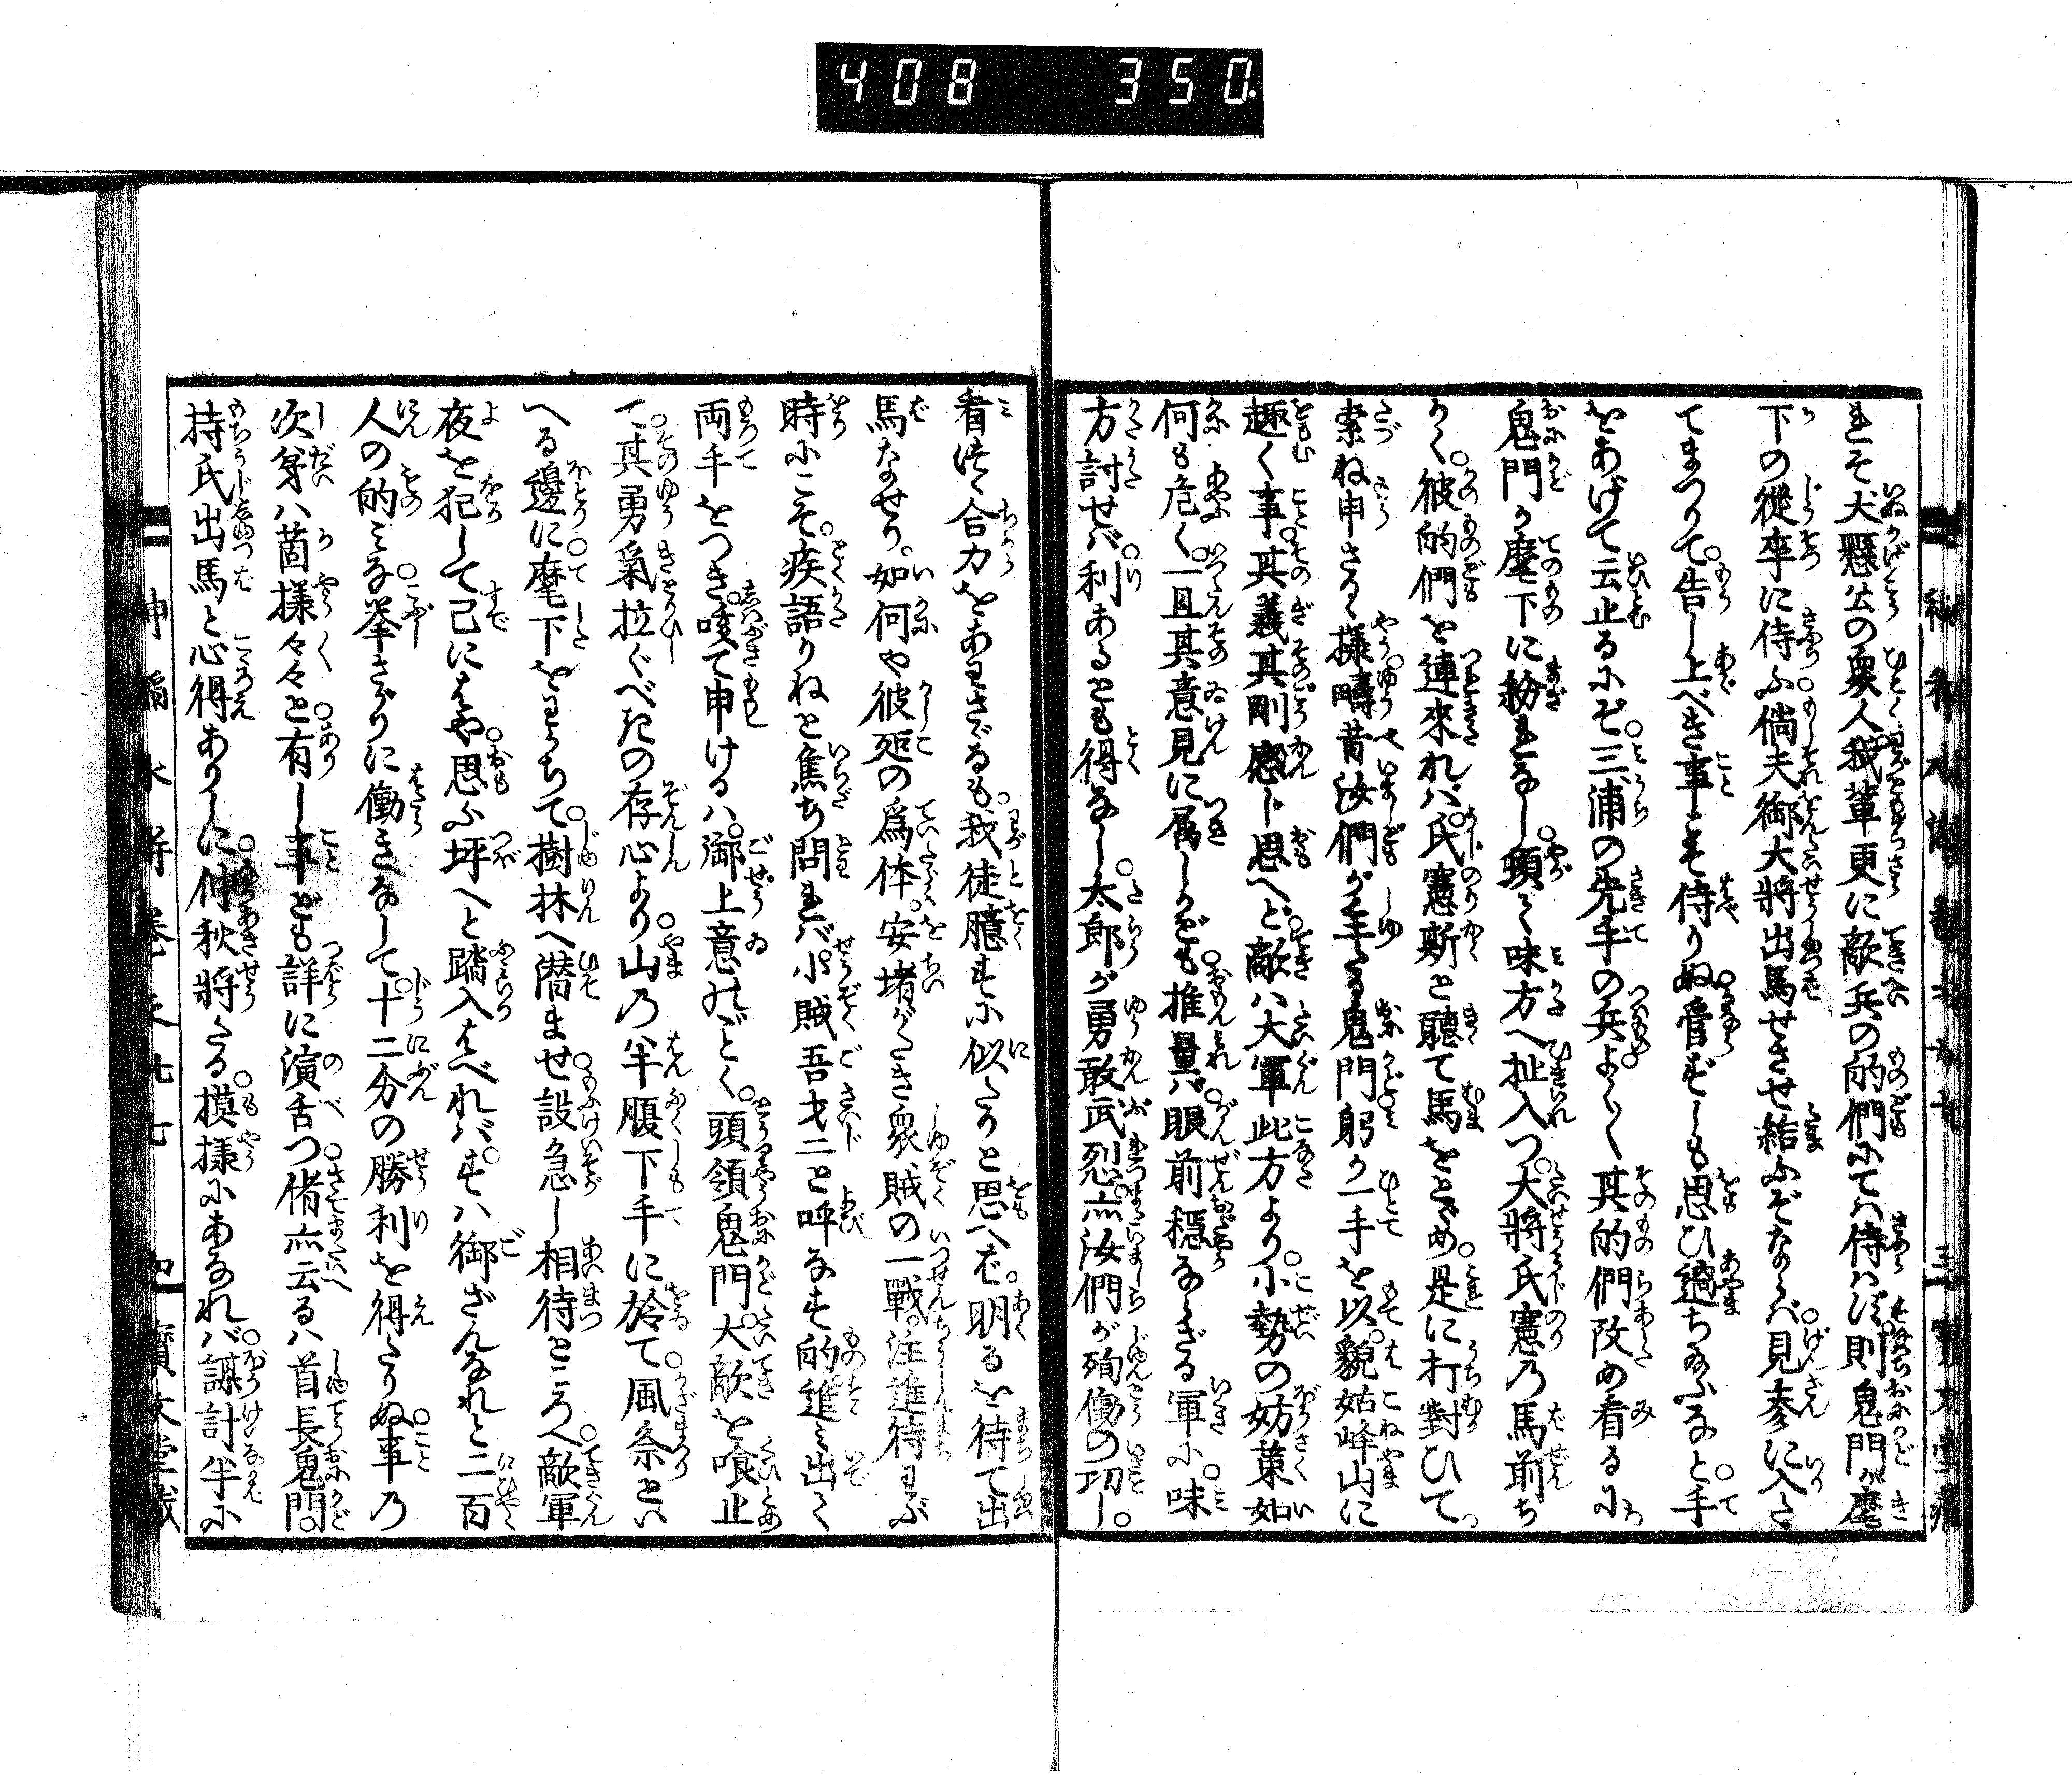 408 350
まそ犬懸公の衆人我輩更に敵兵の的們にてハ侍ハず則鬼門が麾
下の從卒に侍ふ倘夫御大將出馬せさせ給ふぞならバ見參に入た
てまつりて告し上べき事こそ侍りぬ管ずしも思ひ過ちなふなと手
をあげて云止るにぞ三浦の先手の兵よく〱其的們改め看るに
鬼門が麾下に紛まなし頓て味方へ扯入つ大將氏憲の馬前ち
かく彼的們を連來れバ氏憲斯と聽て馬をとゞめ是に打對ひて
索ね申さるゝ樣疇昔汝們が主たる鬼門躬か一手を以貌姑峰山に
趣く事其義其剛感ト思へど敵ハ大軍此方より小勢の妨策如
何も危く一旦其意見に属しかども推量バ眼前穩ならざる軍に味
方討せバ利あるとも得なし太郎が勇敢武烈亦汝們が殉働の功し
看つゝ合力をあまさゞるも我徒臆すに似たりと思へバ明るを待て出
馬なせり如何や彼処の爲体安堵がたき衆賊の一戰注進待わぶ
時にこそ疾語りねと焦ち問まバ小賊吾才二と呼なす的進ミ出て
両手をつき咳て申けるハ御上意のごとく頭領鬼門大敵を喰止
て其勇氣拉ぐべきの存心より山の半腹下手に於て風祭とい
へる邊に麾下をわかちて樹林へ潜ませ設急し相待ところへ敵軍
夜を犯して已にはや思ふ坪へと踏入はべれバすハ御ざんなれと二百
人の的ミな拳さがりに働きなして十二分の勝利を得たりぬ事の
次第ハ箇樣々々と有し事ども詳に演舌つ偖亦云るハ首長鬼門
持氏出馬と心得ありしに仲秋將たる摸樣にあなれバ謀計半に